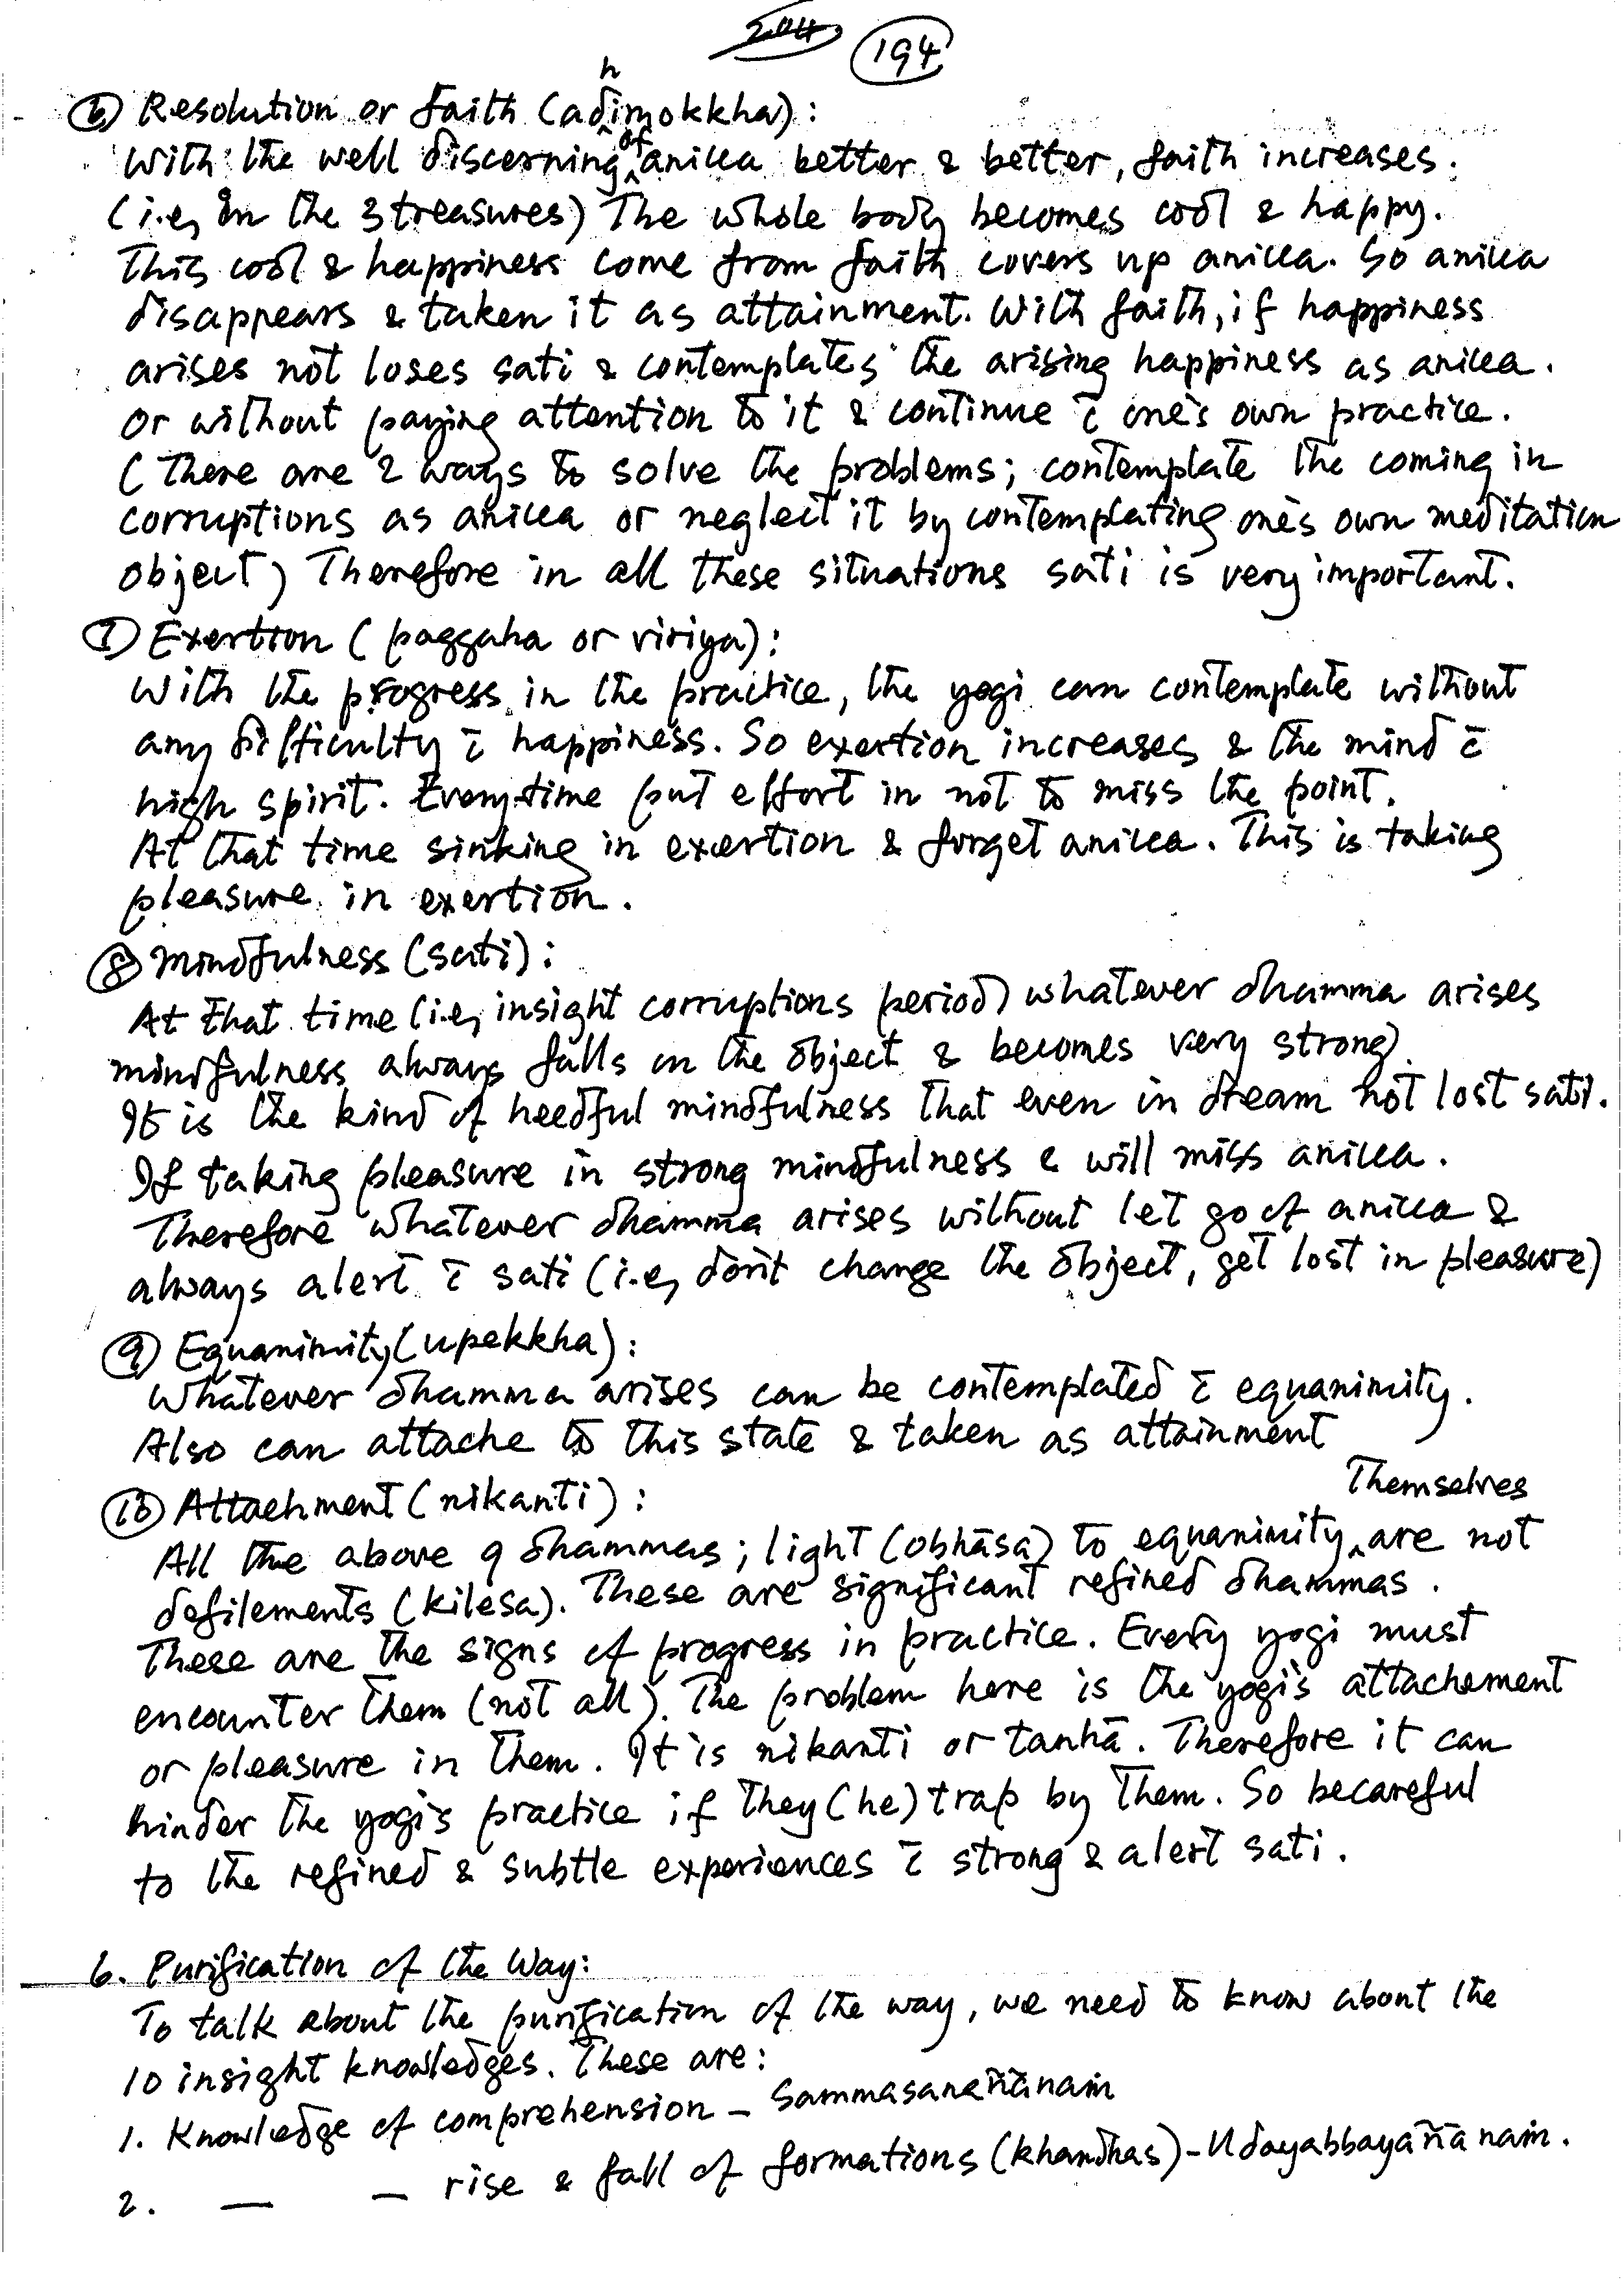 204 194
⑥ Resolution or faith (adhimokkha):
With the well discerning of anicca better & better, faith increases.
(i.e, in the 3 treasures) The whole body becomes cool & happy.
This cool & happiness come from faith covers up anicca. So anicca
disappears & taken it as attainment. With faith, if happiness
arises not loses sati & contemplates the arising happiness as anicca.
Or without paying attention to it & continue c̄ one's own practice.
(There are 2 ways to solve the problems; contemplate the coming in
corruptions as anicca or neglect it by contemplating one's own meditation
object) Therefore in all these situations sati is very important.
⑦ Exertion (paggaha or viriya):
With the progress in the practice, the yogi can contemplate without
any difficulty c̄ happiness. So exertion increases & the mind c̄
high spirit. Everytime put effort in not to miss the point.
At that time sinking in exertion & forget anicca. This is taking
pleasure in exertion.
⑧ Mindfulness (sati):
At that time (i.e, insight corruptions period) whatever dhamma arises
mindfulness always falls on the object & becomes very strong.
It is the kind of heedful mindfulness that even in dream not lost sati.
If taking pleasure in strong mindfulness & will miss anicca.
Therefore whatever dhamma arises without let go of anicca &
always alert c̄ sati (i.e, don't change the object, get lost in pleasure)
⑨ Equanimity (upekkha):
Whatever dhamma arises can be contemplated c̄ equanimity.
Also can attache to this state & taken as attainment
⑩ Attachment (nikanti):
All the above 9 dhammas; light (obhāsa) to equanimity themselves are not
defilements (kilesa). These are significant refined dhammas.
These are the signs of progress in practice. Every yogi must
encounter them (not all). The problem here is the yogi's attachement
or pleasure in them. It is nikanti or tanhā. Therefore it can
hinder the yogi's practice if they (he) trap by them. So becareful
to the refined & subtle experiences c̄ strong & alert sati.
6. Purification of the Way:
To talk about the purification of the way, we need to know about the
10 insight knowledges. These are:
1. Knowledge of comprehension – Sammasanañānaṁ
2. — — rise & fall of formations (khandhas) – Udayabbayañānaṁ.